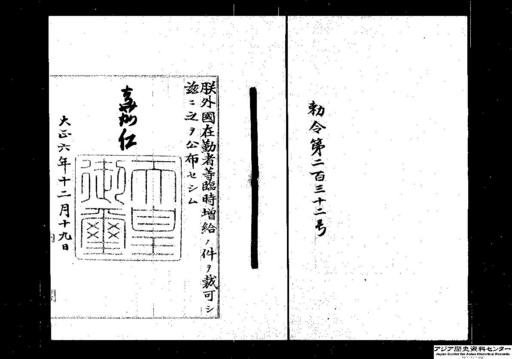 勅令第二百三十二号
朕外國在勤者等臨時增給ノ件ヲ裁可シ
茲ニ之ヲ公布セシム
嘉仁
天皇御璽
大正六年十二月十九日
アジア歴史資料センター
Japan Center for Asian Historical Records